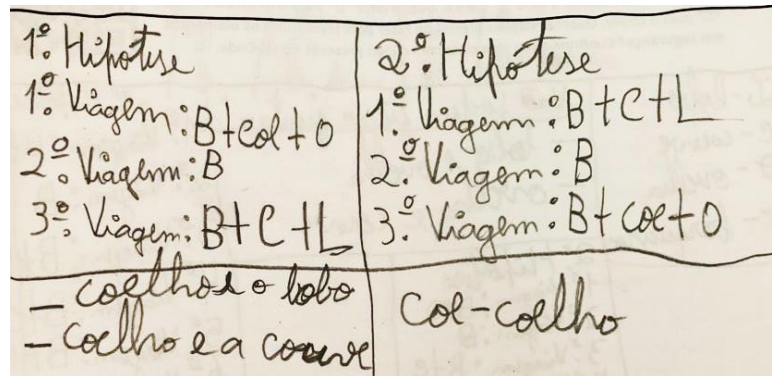 1º. Hipótese
1º. Viagem: B+Col+O
2º. Viagem: B
3º. Viagem: B+C+L
2º. Hipótese
1º. Viagem: B+C+L
2º. Viagem: B
3º. Viagem: B+Coe+O
- coelho e o lobo
- Coelho e a couve
Coe-coelho